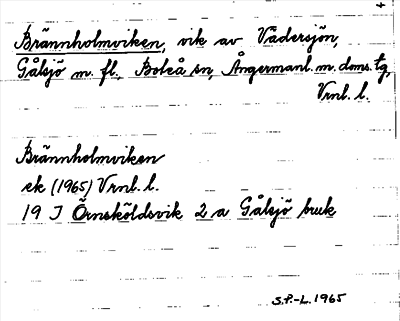 Brännholmviken, vik av Vädersjön,
Gålsjö m. fl., Boteå sn, Ångermanl. m. doms. tg,
Vrnl. l.
Brännholmviken
ek (1965) Vrnl. l.
19 J Örnsköldsvik 2 a Gålsjö bruk
S.P.-L. 1965